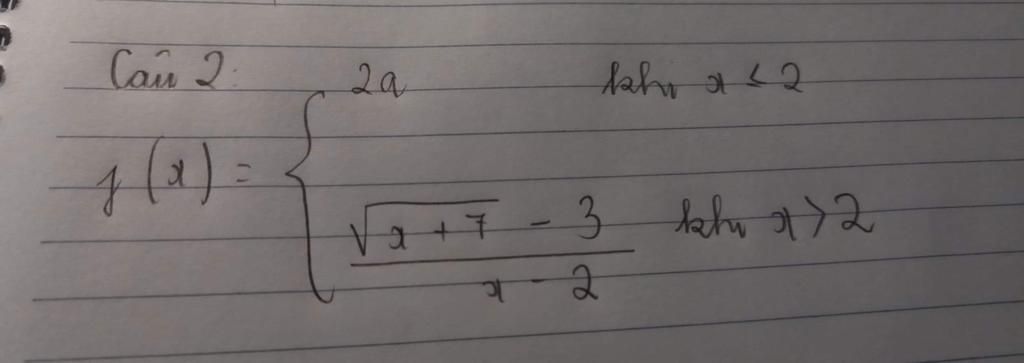 Câu 2:
f(x) = { 2a khi x ≤ 2
√(x + 7) - 3 / x - 2 khi x > 2